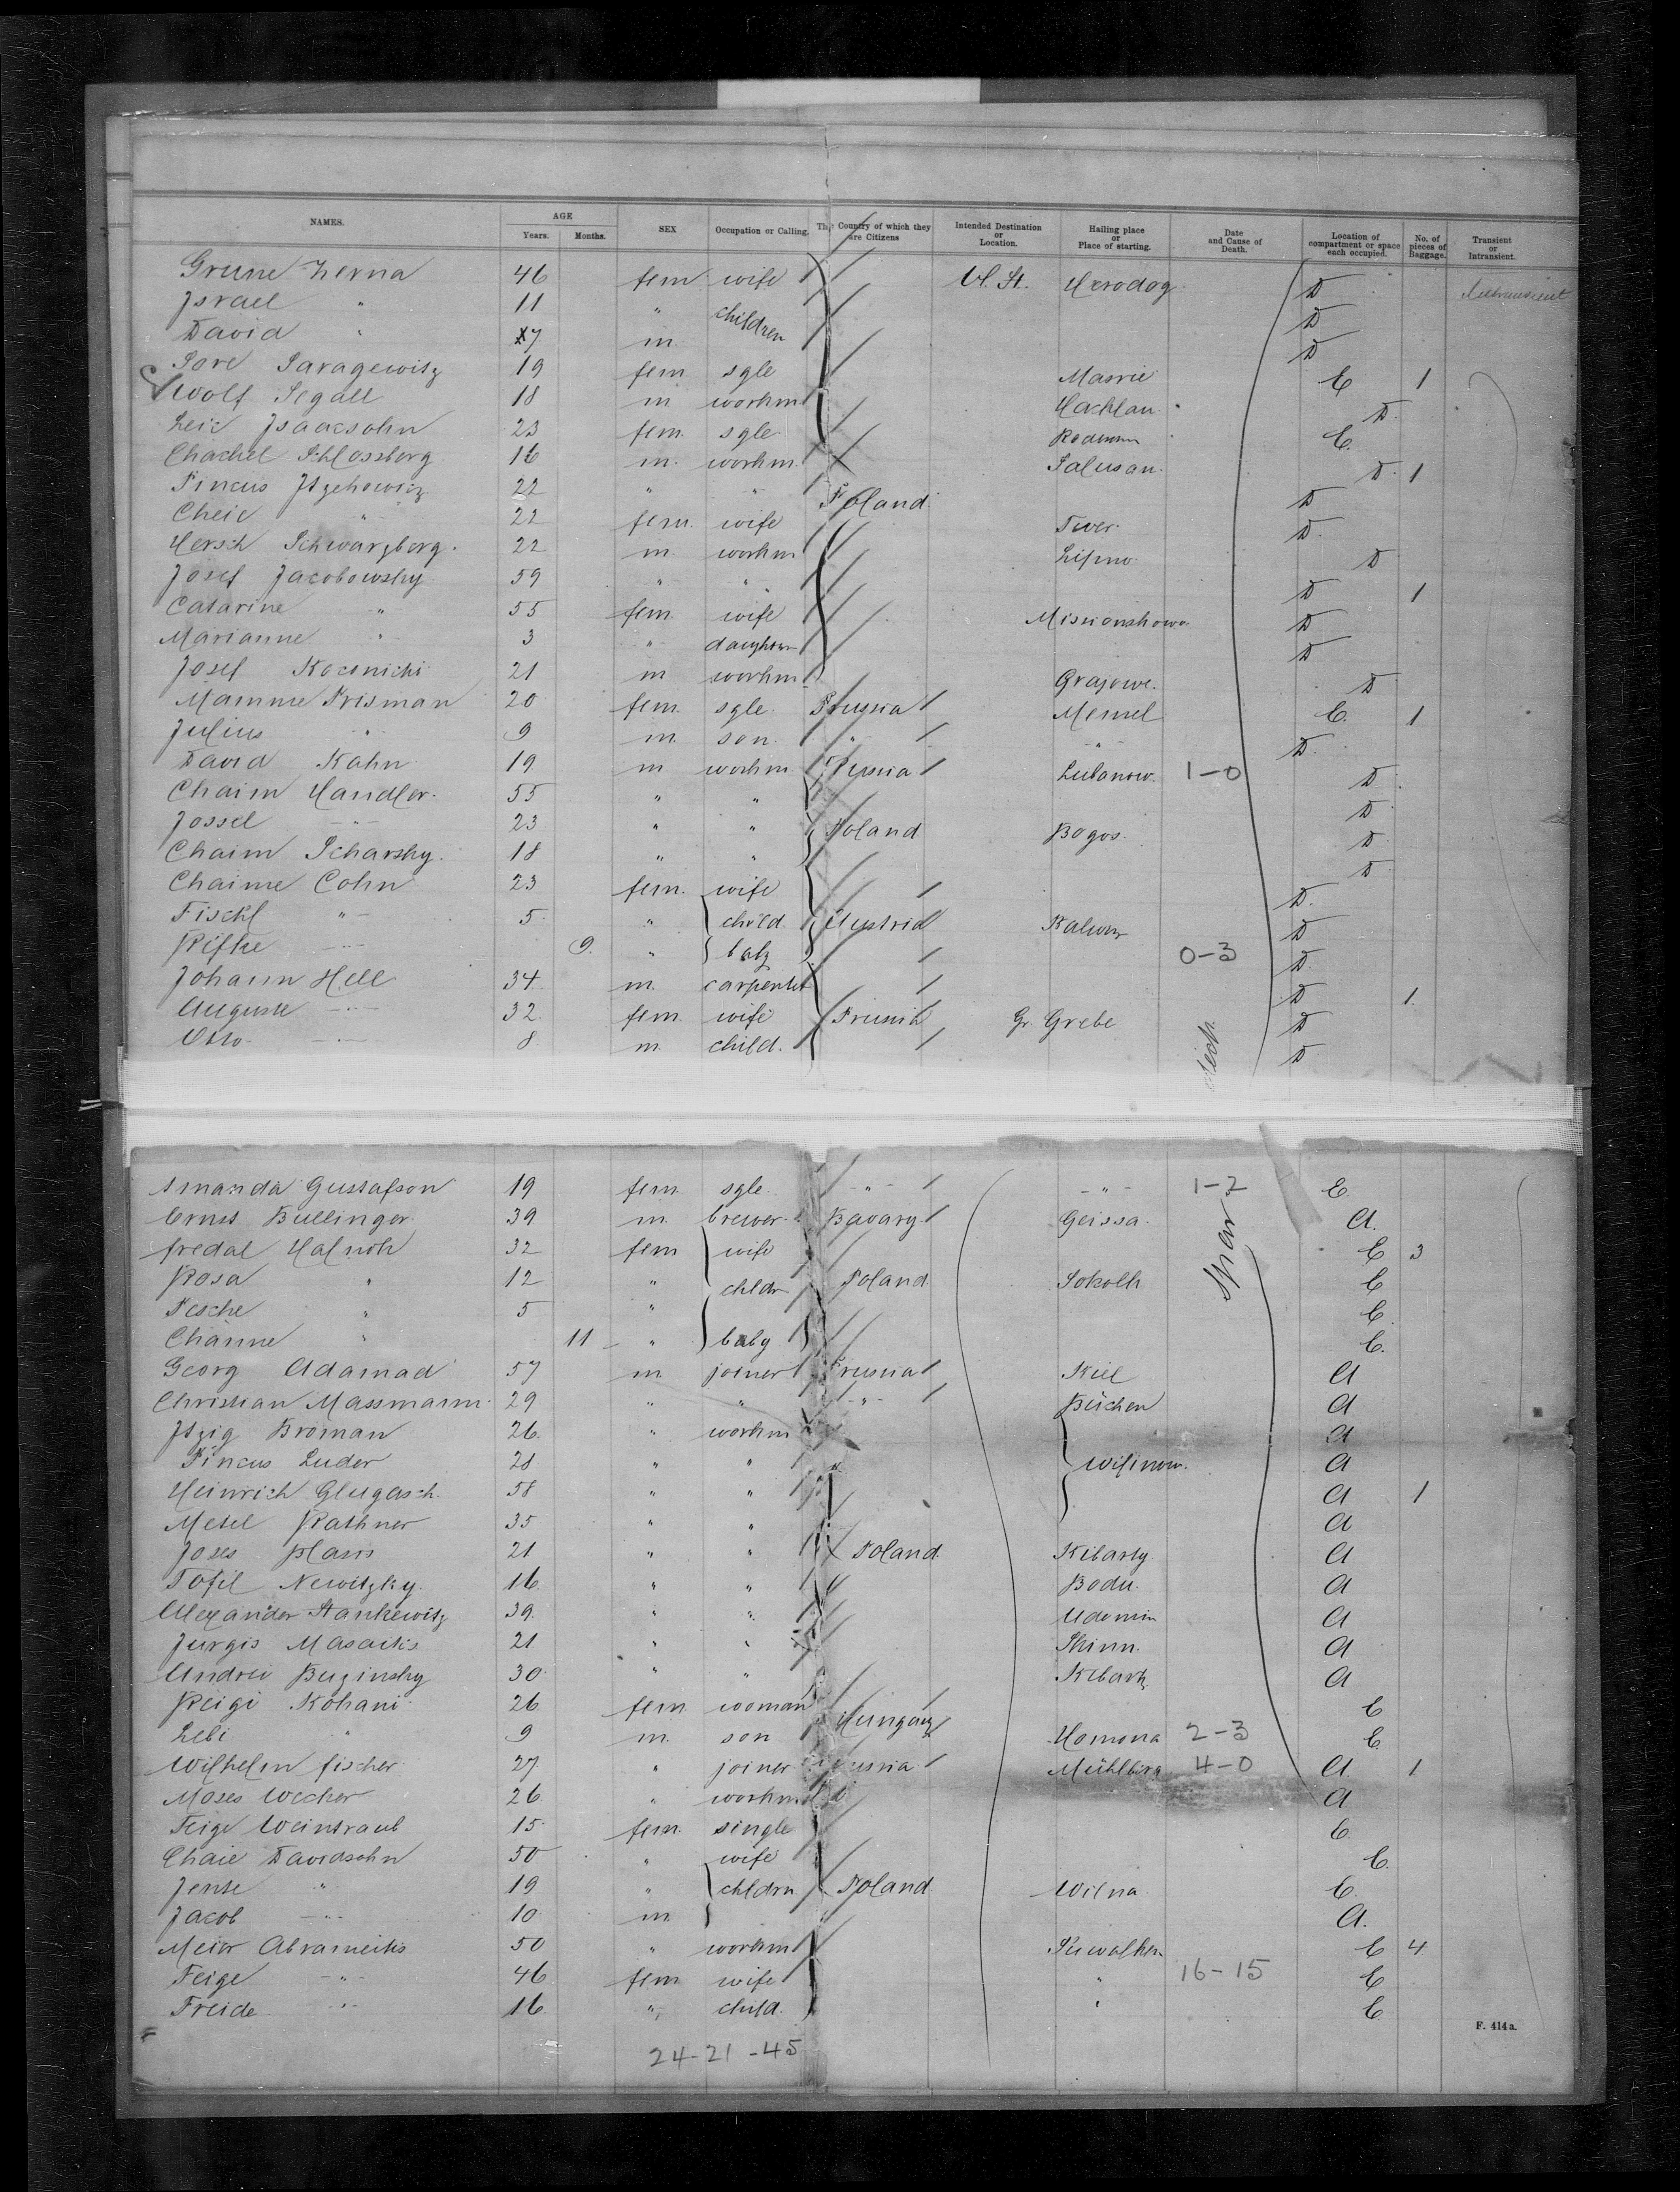 NAMES. AGE Years. Months. SEX Occupation or Calling. The Country of which they are Citizens Intended Destination or Location. Hailing place or Place of starting. Date and Cause of Death. Location of compartment or space each occupied. No. of pieces of Baggage. Transient or Intransient.
Grune Zerna 46 fem wife U. St. D
Israel " 11 " children D
David " 7 m D
Sore Saragewitz 19 fem sgle Masrie E 1
Wolf Segall 18 m workm D
Leie Isaacsohn 23 fem. sgle E.
Chachel Schlossberg 16 m. workm. Salusan. D. 1
Pincus Itzchowicz 22 " " Poland. D
Cheie " 22 fem. wife Twer. D.
Hersch Schwarzberg. 22 m workm Lipno D
Josef Jacobowsky 59 " " D 1
Catarine " 55 fem. wife D
Marianne " 3 " daughter D
Josef Koconicki 21 m workm Grajowe. D
Mamme Frisman 20 fem. sgle. Prussia Memel E. 1
Julius " 9 m. son. " - " - D.
David Kahn 19 m workm Russia Lubanow. 1-0 D
Chaim Handler. 55 " " D
Jossel - " - 23 " " Poland Bogos. D
Chaim Scharsky. 18 " " D
Chaime Cohn 23 fem. wife D.
Fischl " - 5 " child. Austria D
Rifke - " - 9. " baby 0-3 D.
Johann Hell 34 m. carpenter D 1.
Auguste - " - 32. fem. wife Prussia Gr. Grebe D
Otto - " - 8 m. child. D
Amanda Gustafson 19 fem. sgle. - " - - " - 1-2 E
Ernst Bullinger. 39 m. brewer. Bavary. Geissa. A.
32 fem wife E 3
Rosa " 12 " chldr Poland. Sokolk E
Pesche " 5 " E.
Channe " 11 " baby E.
Georg Adamad 57 m. joiner Prussia Kiel A
Christian Massmann. 29 " " - " - Büchen A
Itzig Broman 26 " workm A
Pincus Luder 28 " " A
Heinrich Glugasch. 58 " " A 1
Metel Rathner 35 " " A
Joses 21 " " Poland. Kibarty A
Tofil Newitzky. 16 " " A
Alexander Stankewitz 39. " " Udomin A
Jurgis Masaitis 21 " " A
Andrei Buzinsky 30 " " Kibarty A
Reigi Kohani 26 fem woman Hungary E
Lebi " 9 m. son Homona 2-3 E
Wilhelm Fischer 27 " joiner Russia Mühlberg 4-0 A 1
Moses Wecker 26 " workm A
Feige Weintraub 15 fem. single E.
Chaie Davidsohn 50 " wife E.
Jente " 19 " chldrn Poland Wilna E.
Jacob - " - 10 m. A.
Meier Abrameitis 50 " workm Suwalken E 4
Feige - " - 46 fem wife " 16-15 E
Freide - " - 16 " child. " E
F. 414a.
24-21-45